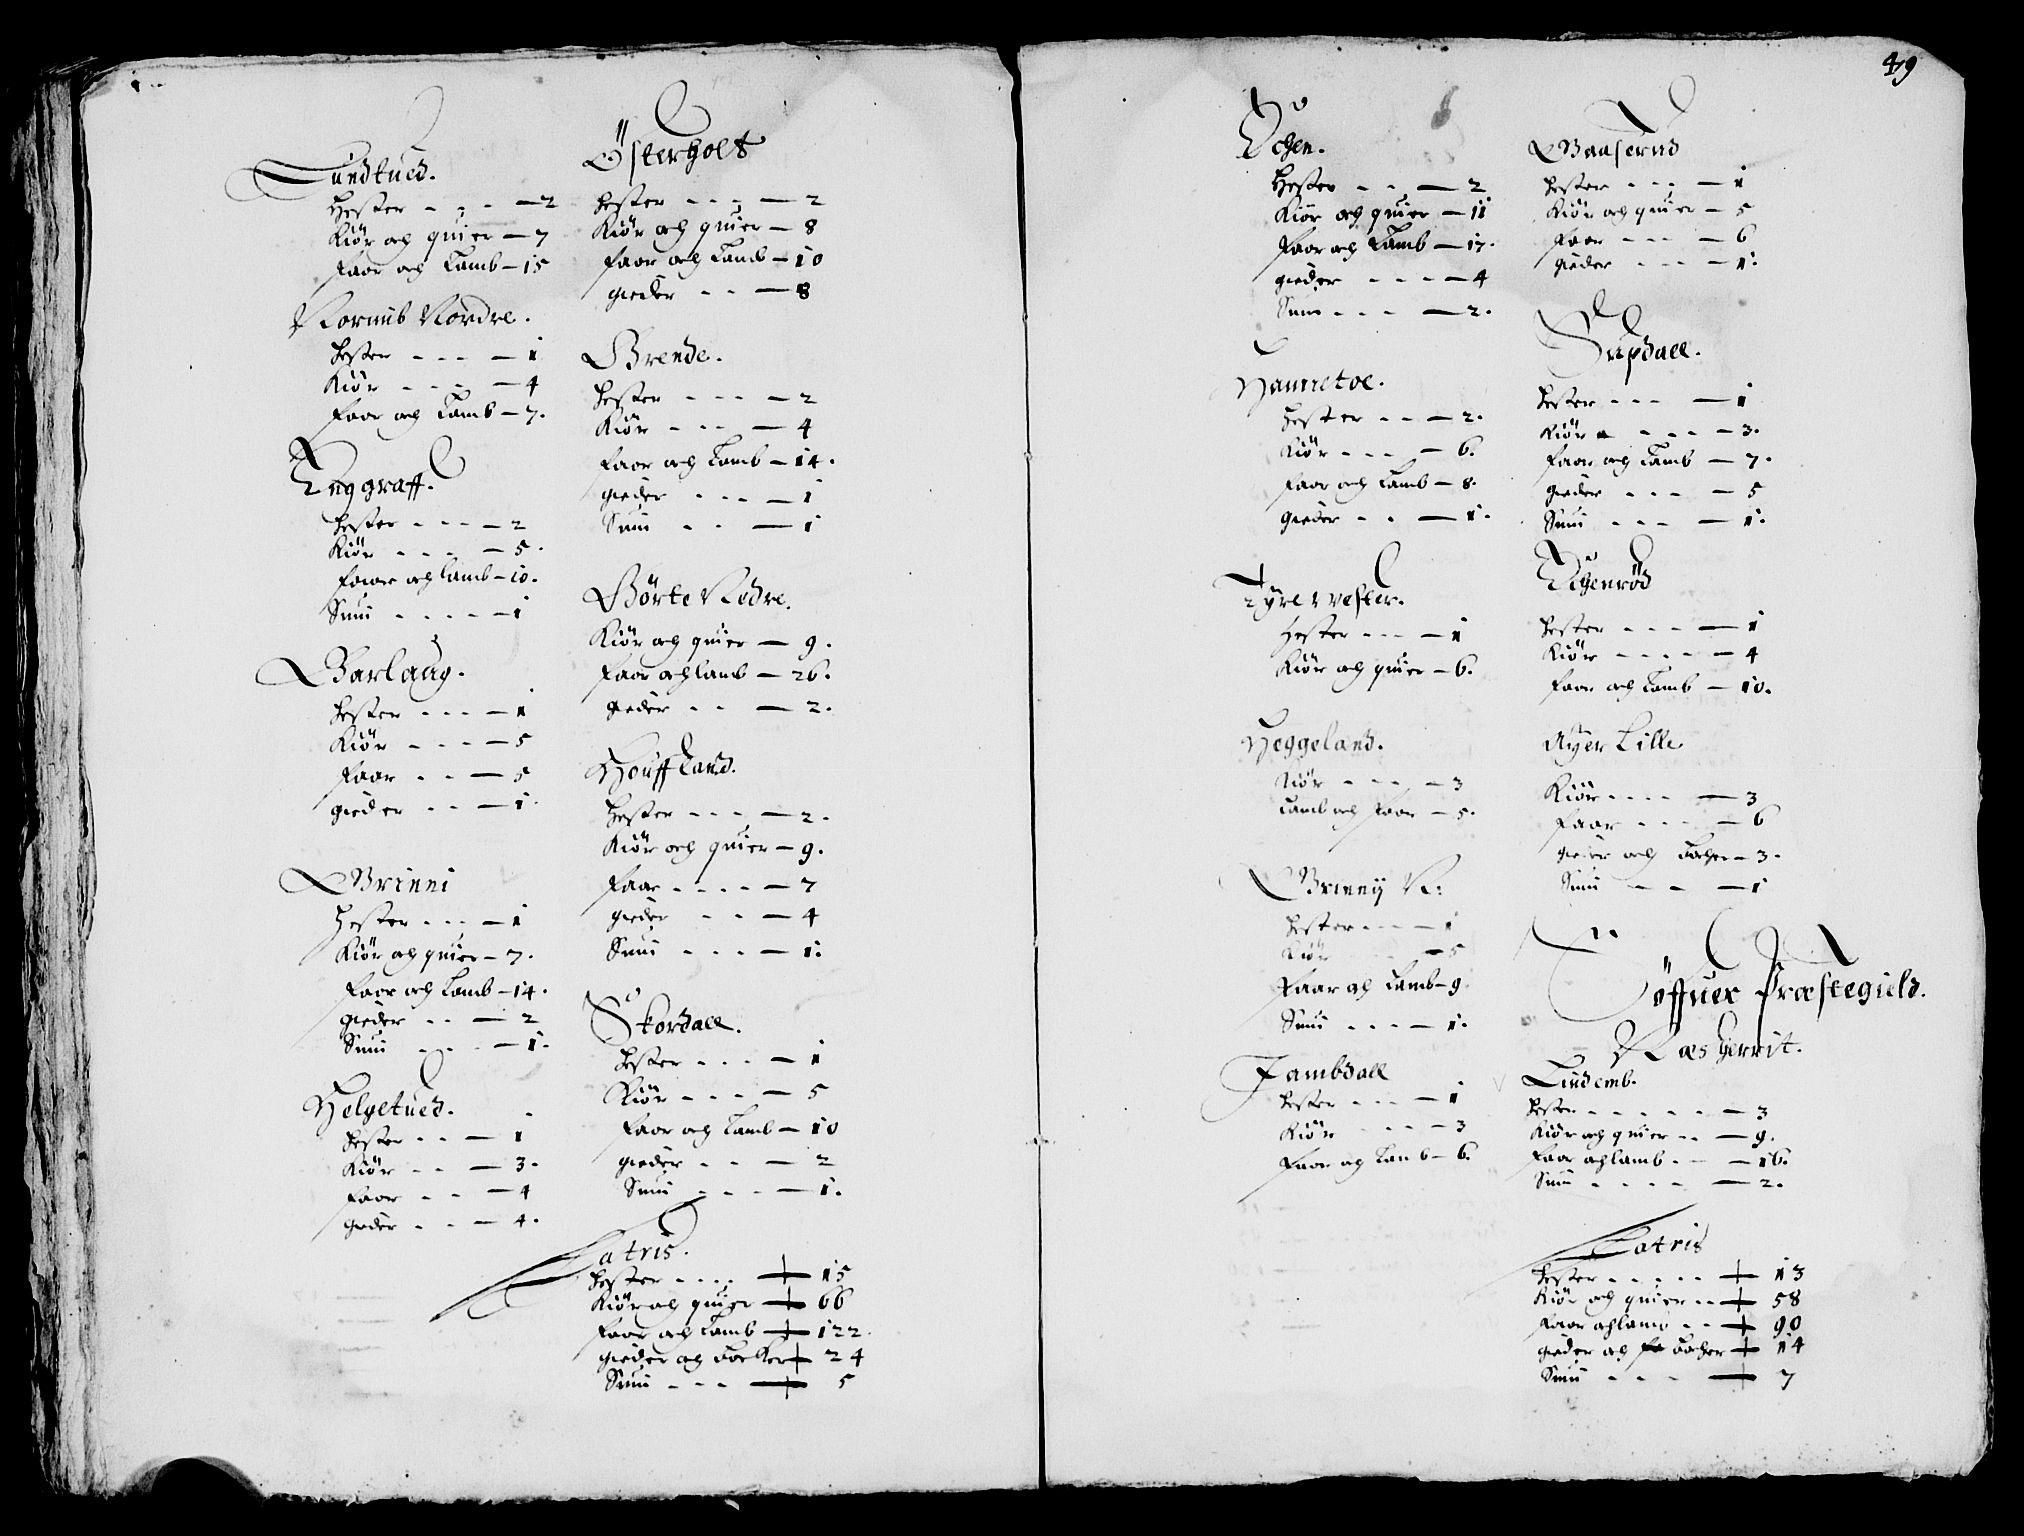 Lundtued.
Hester - - - — 2
Kiör och quier — 7
faar och Lamb — 15
Kornub Nordre.
hester - - - — 1
Kiör - - - — 4
faar och Lamb — 7.
Ruggraff.
hester - - - — 2
Kiör - - - — 5.
faar och lamb — 10.
Suui - - - - — 1
Barlaug.
hester - - - — 1
Kiör - - - — 5
faar - - — 5
gieder - - — 1.
Brinni
Hester - - - — 1
Kiör och quier — 7.
faar och Lamb — 14.
gieder - - — 2
Suui - - - — 1.
Helgetued.
hester - - — 1
Kiör - - — 3.
faar - - — 4
gieder - - — 4.
Österholt
hester - - - — 2
Kiör och quier — 8
faar och Lamb — 10
gieder - - — 8
Brende.
hester - - - — 2
Kiör - - - — 4
faar och Lamb — 14.
gieder - - - — 1
Suui - - — 1
Börte Nedre.
Kiör och quier — 9.
faar och lamb — 26.
gieder - - — 2.
Houffland.
Hester - - - — 2.
Kiör och quier — 9.
faar - - - - — 7
gieder - - — 4
Suui - - - — 1.
Skordall.
hester - - - — 1
Kiör - - - — 5
faar och Lamb — 10
gieder - - — 2
Suui - - - — 1.
Latris.
hester - - - - — 15
Kiör och quier — 66
faar och Lamb — 122.
gieder och Bocker — 24
Suui - - - — 5
49
Hester - - — 2
Kiör och quier — 11
faar och Lamb — 17.
gieder - - - - — 4
Suui - - - — 2.
Hannetoe.
Hester - - — 2.
Kiör - - - — 6.
faar och Lamb — 8.
gieder - - — 1.
Tyre vester.
Hester - - - — 1
Kiör och quier — 6.
Heggeland.
Kiör - - - - — 3
Lamb och faar — 5.
Brinny N:
hester - - - — 1
Kiör — 5
faar och Lamb — 9
Suui - - - - — 1.
Jambdall
hester - - - — 1
Kiör - - - — 3
faar och Lamb — 6.
Baaserud
hester - - - — 1
Kiör och quier — 5
faar - - - — 6
gieder - - - — 1.
Supdall.
hester - - - — 1
Kiör - - - - — 3.
faar och Lamb — 7.
gieder - - - — 5
Suui - - - — 1.
hester - - - — 1
Kiör - - - - — 4
faar och Lamb — 10.
Ayer Lille
Kiör - - - - — 3
faar - - - - — 6
gieder och Bocher — 3.
Suui - - — 1
Söffuer Præstegield.
Næs herrit.
Lindemb.
hester - - - - - — 3
Kiör och quier - - — 9.
faar och lamb - - — 16.
Suui - - - - — 2.
Latris
hester - - - - - — 13
Kiör och quier - - — 58
faar och lamb - - — 90
gieder och Bocher — 14
Suui - - - — 7